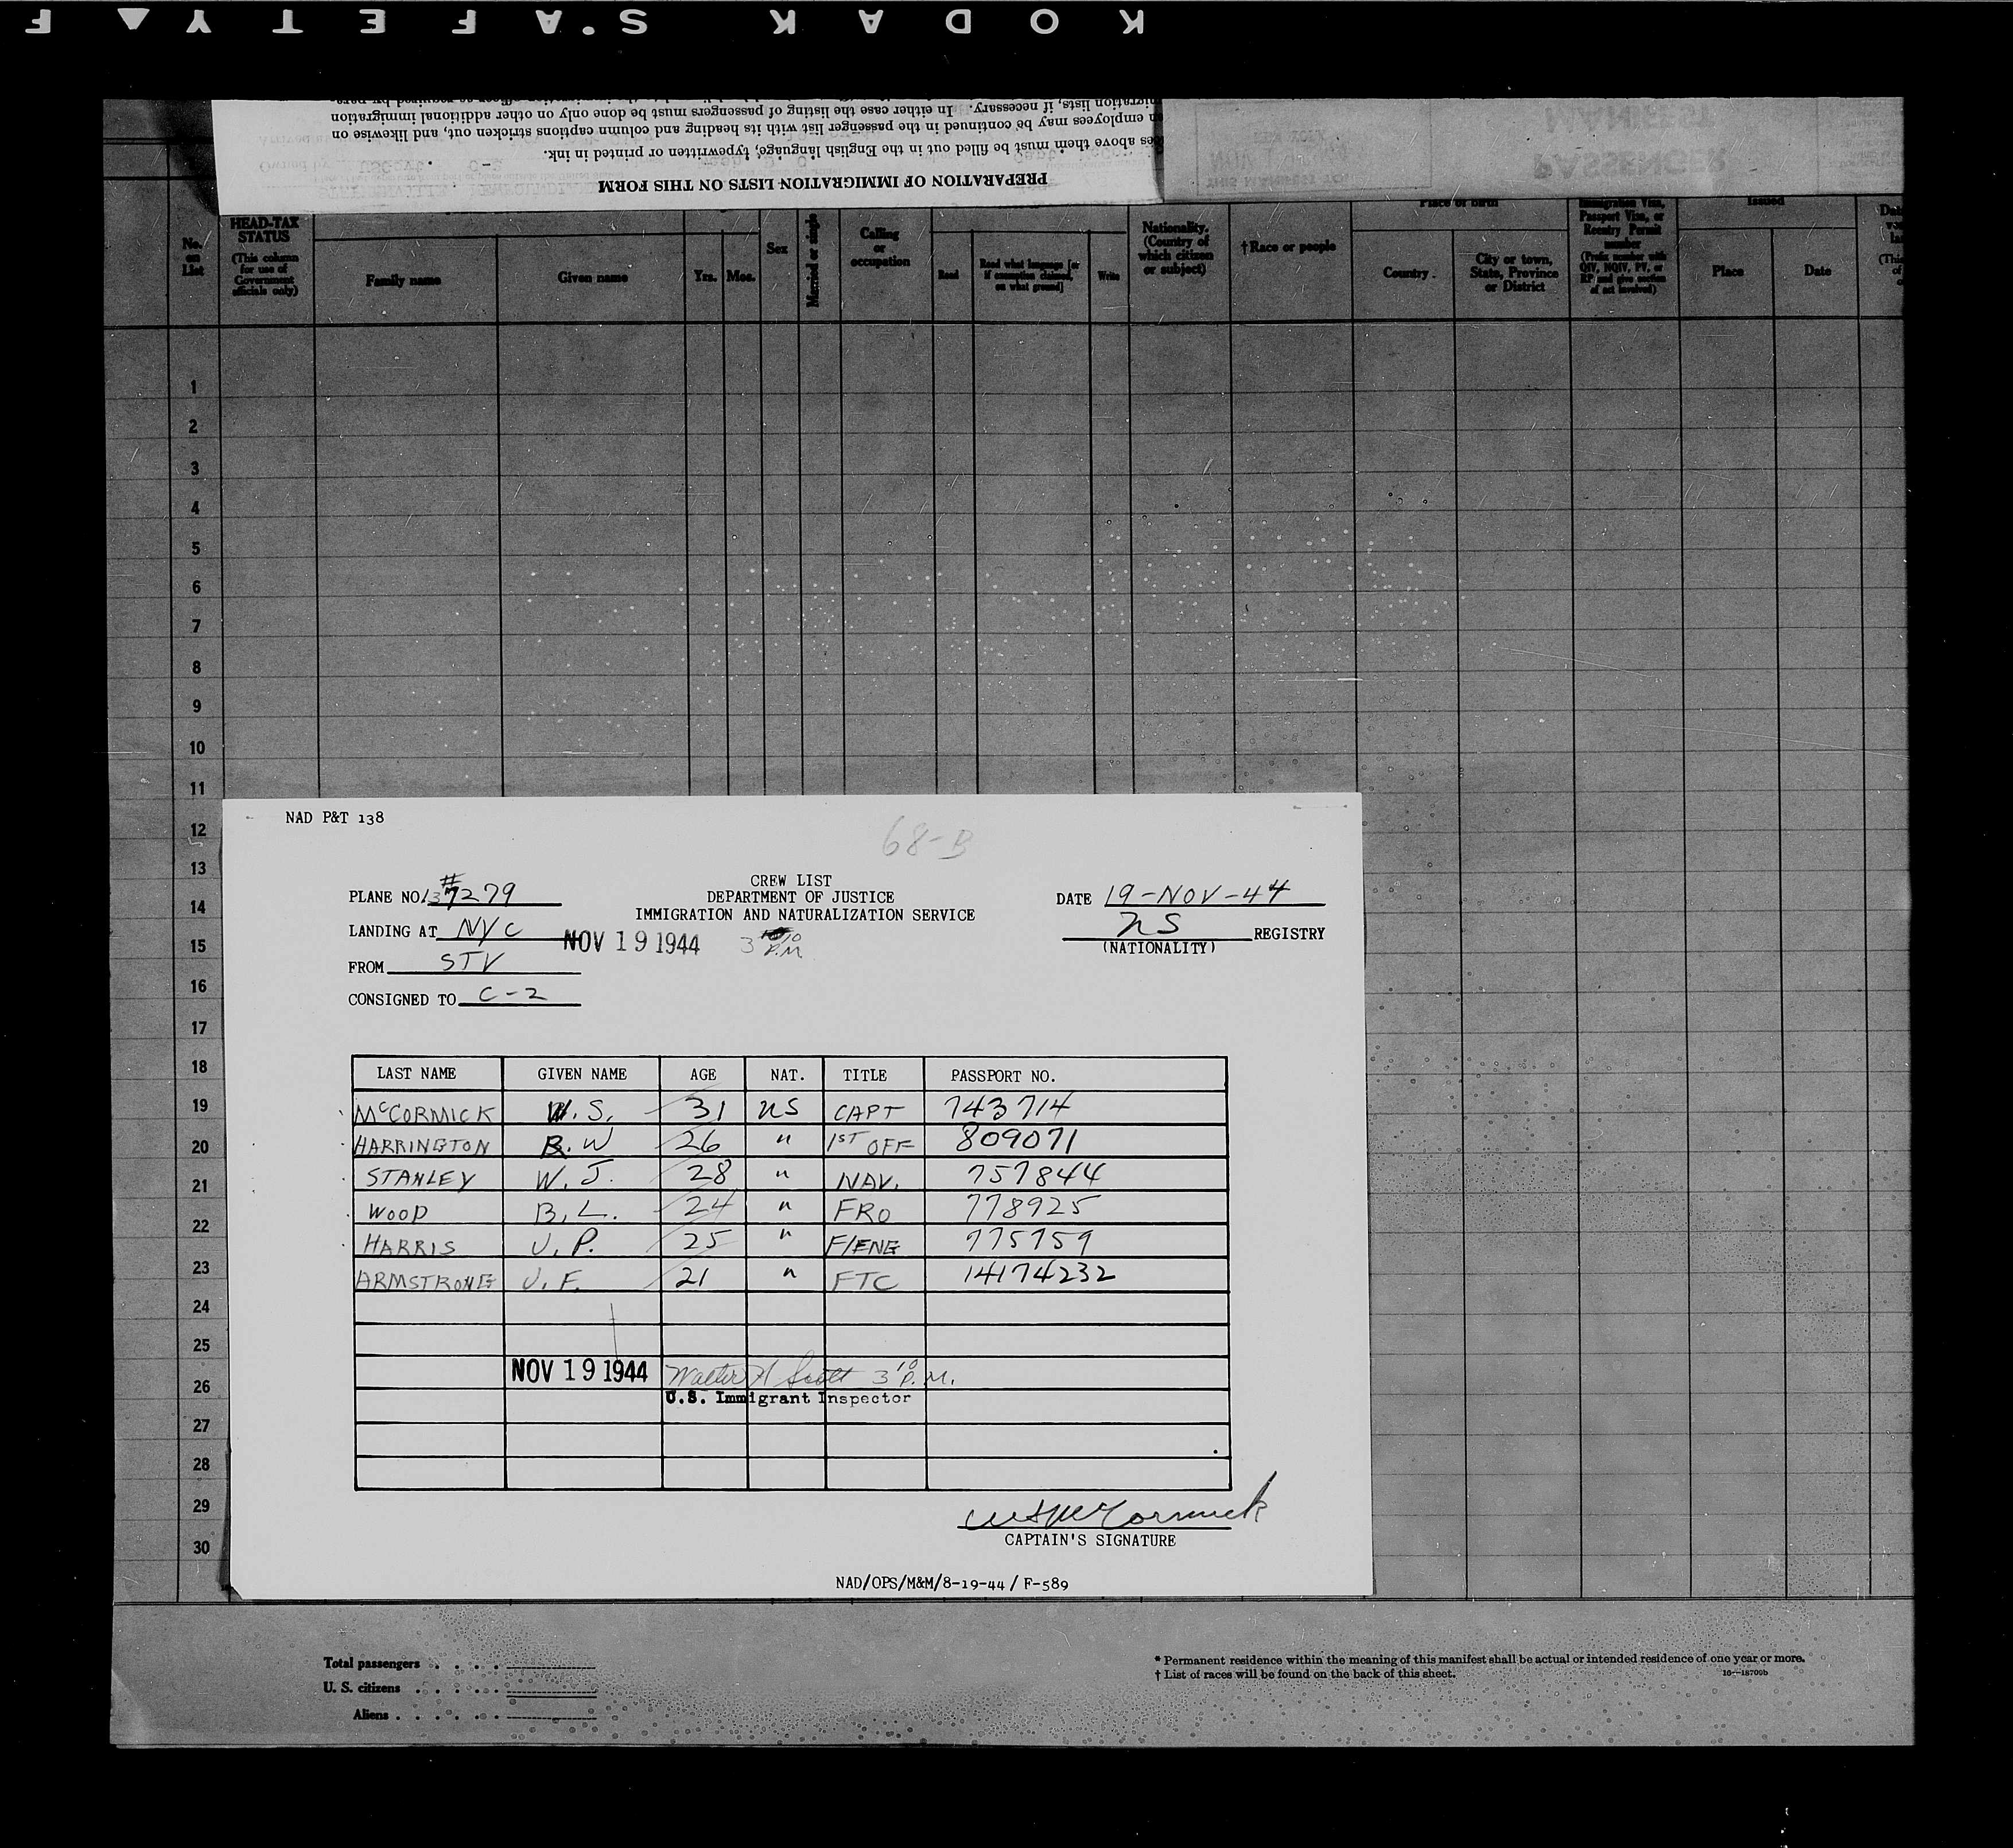 KODAK SAFETY F
PREPARATION OF IMMIGRATION LISTS ON THIS FORM
es above them must be filled out in the English language, typewritten or printed in ink.
employees may be continued in the passenger list with its heading and column captions stricken out, and likewise on
migration lists, if necessary. In either case the listing of passengers must be done only on other additional immigration
PASSENGER
MANIFEST
No. on List
HEAD-TAX STATUS
(This column for use of Government officials only)
Family name
Given name
Yrs.
Mos.
Sex
Married or single
Calling or occupation
Read
Read what language [or if exemption claimed, on what ground]
Write
Nationality. (Country of which citizen or subject)
†Race or people
Place of birth
Country.
City or town, State, Province or District
Immigration Visa, Passport Visa, or Reentry Permit number
(Prefix number with QIV, NQIV, PV, or RP and give section of act involved)
Issued
Place
Date
1
2
3
4
5
6
7
8
9
10
11
12
13
14
15
16
17
18
19
20
21
22
23
24
25
26
27
28
29
30
NAD P&T 138
68-B
CREW LIST
DEPARTMENT OF JUSTICE
IMMIGRATION AND NATURALIZATION SERVICE
PLANE NO. #137279
DATE 19-NOV-44
LANDING AT NYC
NOV 19 1944 3 10 P.M
US REGISTRY
(NATIONALITY)
FROM STV
CONSIGNED TO C-2
LAST NAME GIVEN NAME AGE NAT. TITLE PASSPORT NO.
McCORMICK W.S. 31 US CAPT 743714
HARRINGTON B.W 26 " 1ST OFF 809071
STANLEY W.J. 28 " NAV. 757844
WOOD B.L. 24 " FRO 778925
HARRIS J.P. 25 " F/ENG 775759
ARMSTRONG J.F. 21 " FTC 14174232
NOV 19 1944 Walter A Scott 3 10 P.M.
U.S. Immigrant Inspector
WS McCormick
CAPTAIN'S SIGNATURE
NAD/OPS/M&M/8-19-44 / F-589
Total passengers . . . .
U. S. citizens . . . . .
Aliens . . . . . .
* Permanent residence within the meaning of this manifest shall be actual or intended residence of one year or more.
† List of races will be found on the back of this sheet.
16—18709b